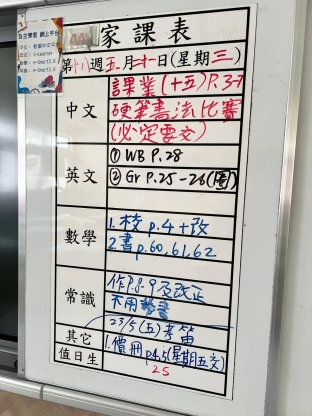 家課表
第十八週五月二十一日(星期三)
中文
課業(十五)P.3-7
硬筆書法比賽
(必定要交)
英文
① WB P.28
② Gr P.25-26(圈)
數學
1. 校 p.4+改
2. 書 p.60,61,62
常識
作P.8-9及改正
不用替書
其它
23/5(五)考笛
1. 價冊 p45(星期五交)
值日生
25